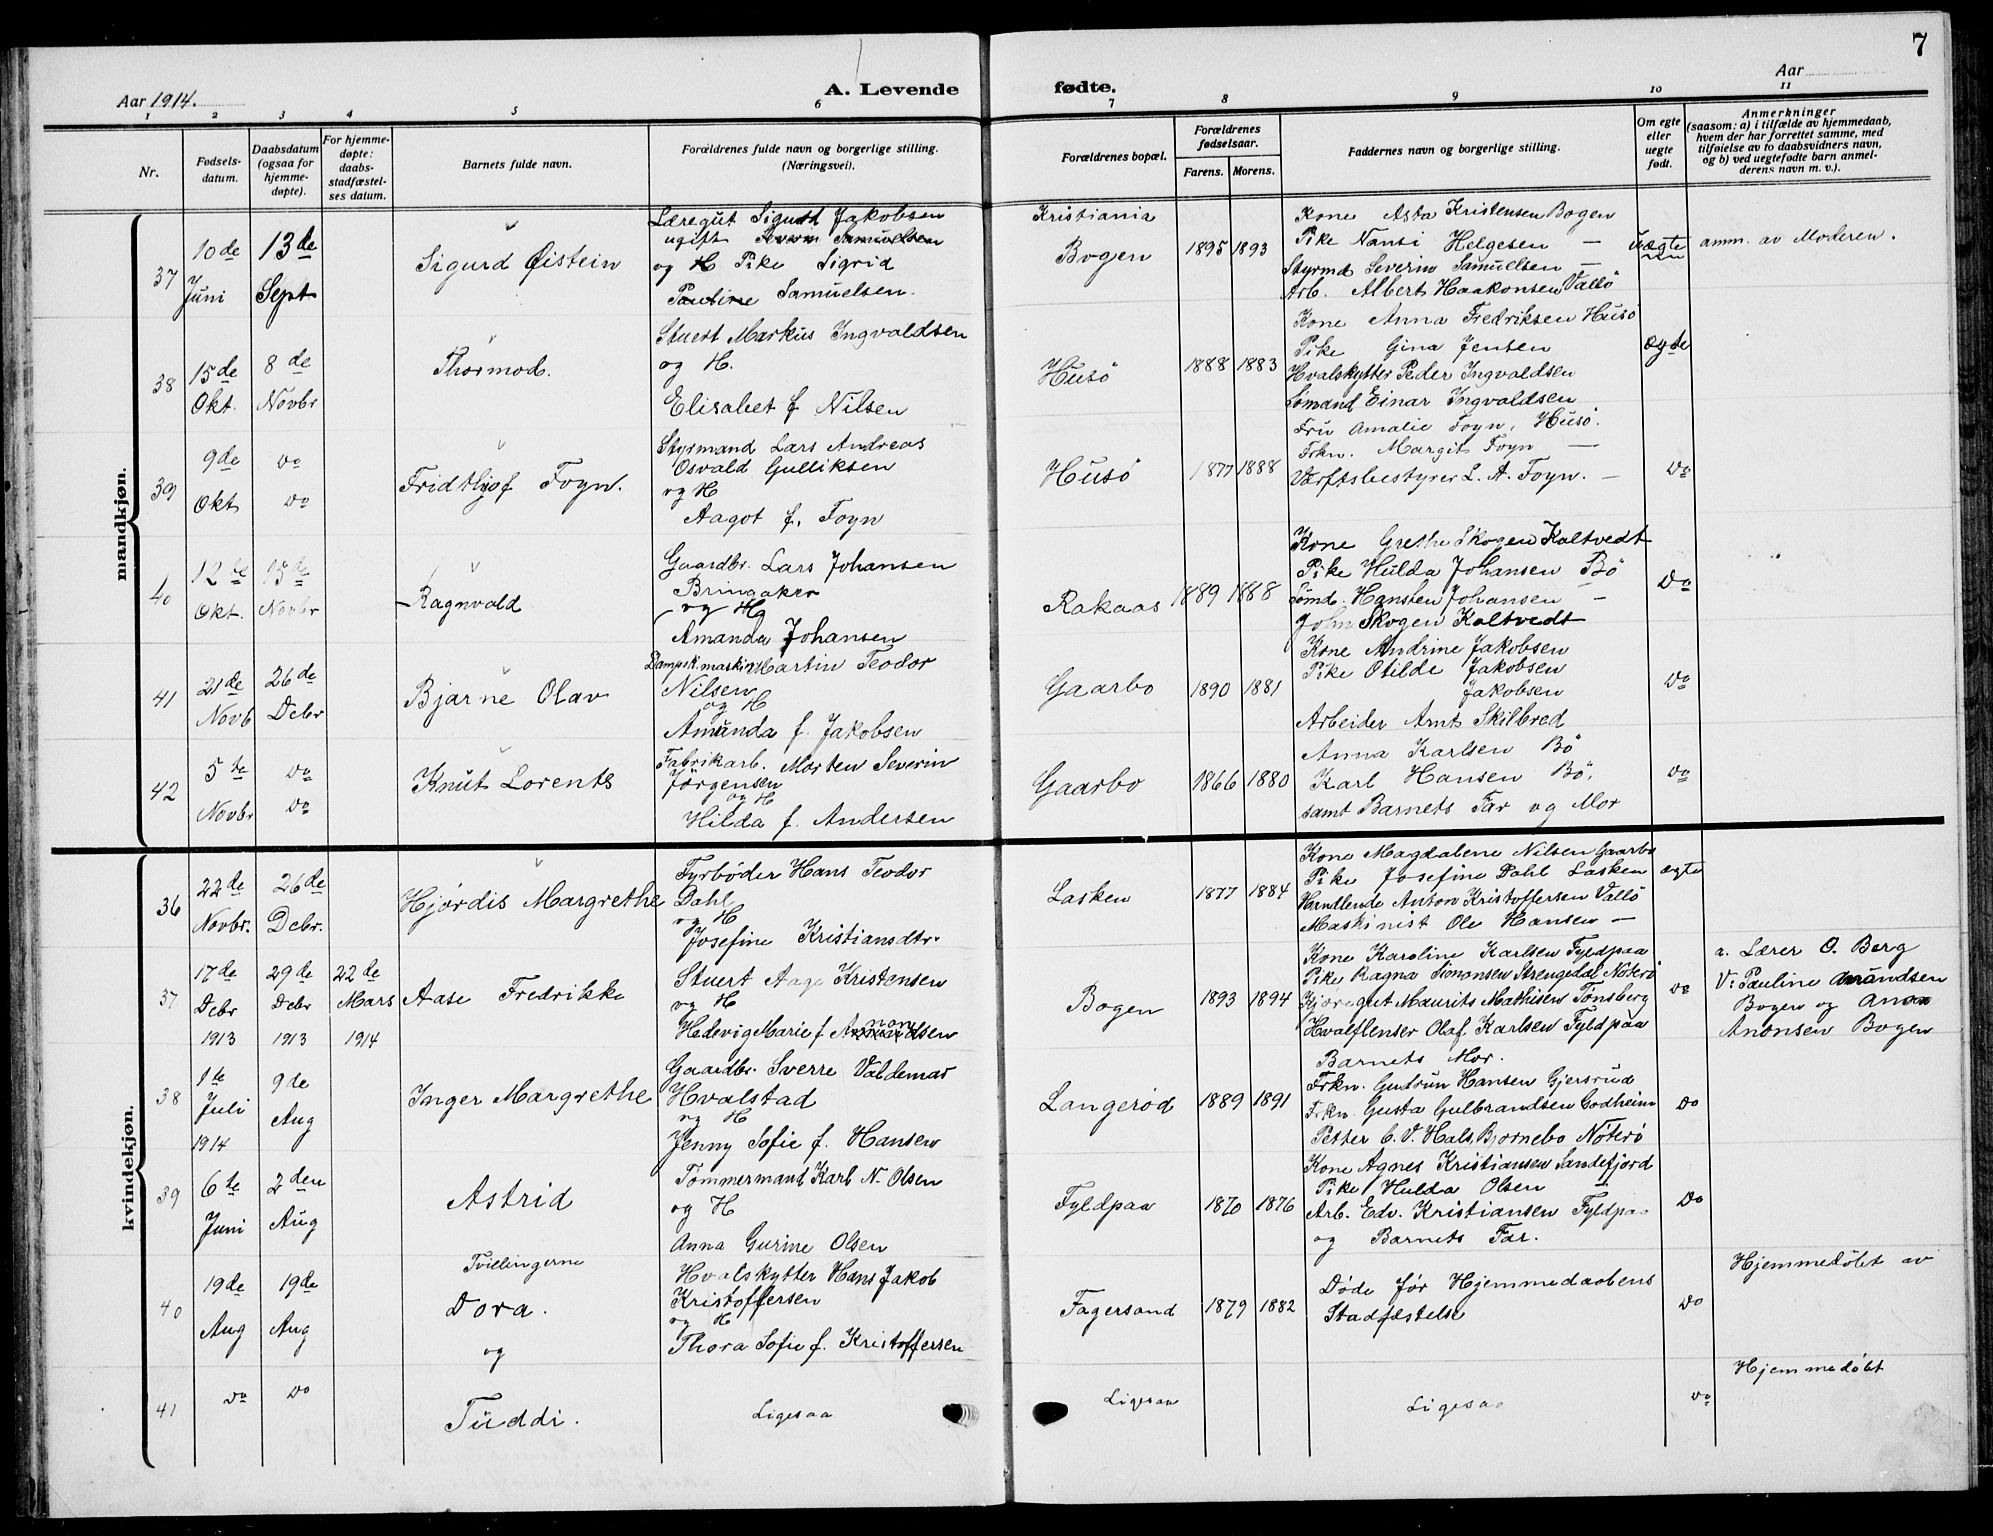 7
Aar 1914.
A. Levende fødte.
Aar
1 2 3 4 5 6 7 8 9 10 11
Nr.
Fødsels-
datum.
Daabsdatum
(ogsaa for
hjemme-
døpte).
For hjemme-
døpte:
daabs-
stadfæstel-
ses datum.
Barnets fulde navn.
Forældrenes fulde navn og borgerlige stilling.
(Næringsvei).
Forældrenes bopæl.
Forældrenes
fødselsaar.
Farens. Morens.
Faddernes navn og borgerlige stilling.
Om egte
eller
uegte
født.
Anmerkninger
(saasom: a) i tilfælde av hjemmedaab,
hvem der har forrettet samme, med
tilføielse av to daabsvidners navn,
og b) ved uegtefødte barn anmel-
derens navn m. v.).
mandkjøn.
37
10de
Juni
13de
Sept
Sigurd Øistein
Læregut Sigurd Jakobsen
ugift Severin Samuelsen
og H Pike Sigrid
Pauline Samuelsen.
Kristiania
Bogen
1895 1893
Kone Asta Kristensen Bogen
Pike Nansi Helgesen —
Styrmd Severin Samuelsen —
Arb. Albert Haakonsen Vallö
Uægte
anm. av Moderen.
38
15de
Okt.
8de
Novbr
Thormod.
Stuert Markus Ingvaldsen
og H.
Elisabet f Nilsen
Husö
1888 1883
Kone Anna Fredriksen Husö
Pike Gina Jensen
Hvalskytter Peder Ingvaldsen
Sømand Einar Ingvaldsen
ægte
39
9de
Okt
do
do
Fridthjof Foyn.
Styrmand Lars Andreas
Osvald Gulliksen
og H
Aagot f. Foyn
Husö
1877 1888
Fru Amalie Foyn, Husö.
Frkn. Margit Foyn —
Værftsbestyrer L. A. Foyn. —
do
40
12te
Okt.
15de
Novbr
Ragnvald
Gaardbr. Lars Johansen
Bringaker
og H
Amanda Johansen
Rakaas
1889 1888
Kone Grethe Skogen Kaltvedt
Pike Hulda Johansen Bö
Sömd. Hansten Johansen —
John Skogen Kaltvedt
do
41
21de
Novb
26de
Debr
Bjarne Olav
Dampsk. maskin Martin Teodor
Nilsen
og H
Amunda f. Jakobsen
Gaarbo
1890 1881
Kone Andrine Jakobsen
Pike Otilde Jakobsen
Jakobsen
Arbeider Arnt Skilbred
do
42
5te
Novbr
do
do
Knut Lorents
Fabrikarb. Morten Severin
Jörgensen
og H
Hilda f. Andersen
Gaarbo
1866 1880
Anna Karlsen Bö
Karl Hansen Bö,
samt Barnets Far og Mor
do
kvindekjøn.
36
22de
Novbr.
26de
Debr.
Hjördis Margrethe
Fyrbøder Hans Teodor
Dahl
og H
Josefine Kristiansdtr.
Lasken
1877 1884
Kone Magdalene Nilsen Gaarbo
Pike Josefine Dahl Lasken
Handlende Anton Kristoffersen Vallö
Maskinist Ole Hansen —
ægte
37
17de
Debr
1913
29de
Debr
1913
22de
Mars
1914
Aase Fredrikke
Stuert Aage Kristensen
og H
Hedevig Marie f
Bogen
1893 1894
Kone Karoline Karlsen Fyldpaa
Pike Ragna Simonsen Strengsdal Nöterö
Kjöregut Maurits Mathisen Tønsberg
Hvalflenser Olaf Karlsen Fyldpaa
Barnets Mor.
do
a. Lærer O. Berg
V: Pauline Amundsen
Bogen og Anna
Anonsen Bogen
38
1te
Juli
1914
9de
Aug
Inger Margrethe
Gaardbr. Sverre Valdemar
Hvalstad
og H
Jenny Sofie f. Hansen
Langerød
1889 1891
Frkn. Gudrun Hansen Gjersrud
Frkn. Gusta Gulbrandsen Godheim
Petter C. V. Hals, Bjornebo Nöterö
do
39
6te
Juni
2den
Aug
Astrid
Tømmermand Karl N. Olsen
og H
Anna Gurine Olsen
Fyldpaa
1870 1876
Kone Agnes Kristiansen Sandefjord
Pike Hulda Olsen —
Arb. Edv. Kristiansen Fyldpaa
og Barnets Far.
do
40
19de
Aug
19de
Aug
Tvillingerne
Dora.
og
Hvalskytter Hans Jakob
Kristoffersen
og H
Thora Sofie f. Kristoffersen
Fagersand
1879 1882
Døde før Hjemmedaabens
Stadfæstelse
do
Hjemmedöbt av
41
do
do
Tuddi.
Ligesaa
Ligesaa
Ligesaa
do
Hjemmedöbt